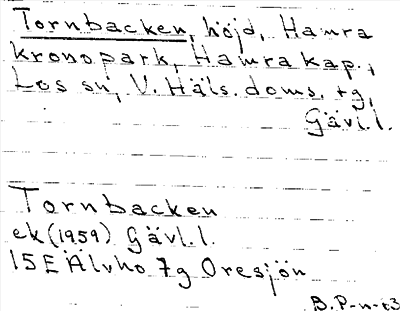 Tornbacken, höjd, Hamra
kronopark, Hamra kap.,
Los sn, V. Häls. doms. tg,
Gävl.l.
Tornbacken
ek (1959) Gävl.l.
15E Älvho 7g Oresjön
B.P-n-63